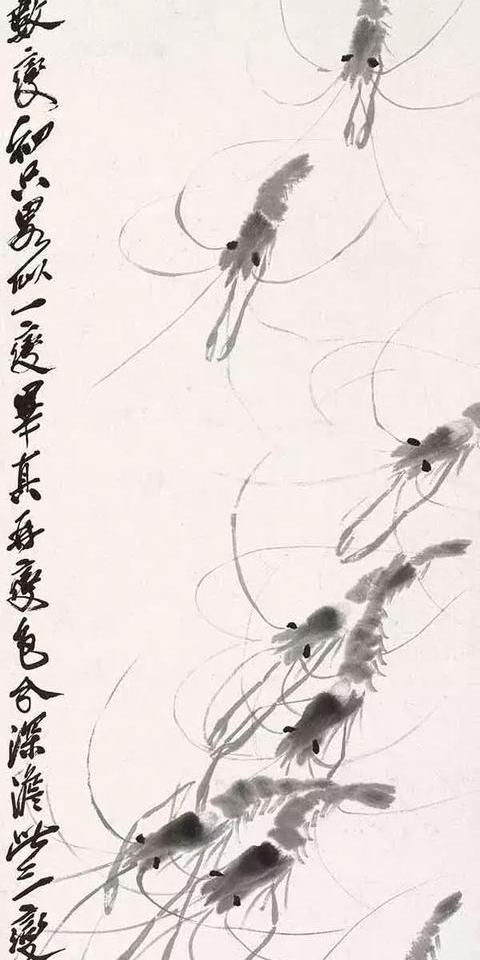 數變初只略似一變畢真再變色分深澹此三變